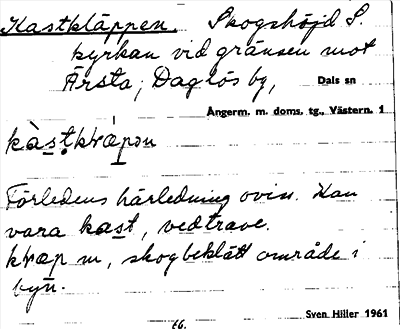 Kastkläppen. Skogshöjd S.
kyrkan vid gränsen mot
Årsta, Daglös by, Dals sn
Ångerm. m. doms. tg., Västern. 1
kàstkɽæpən
Förledens härledning oviss. Kan
vara kast, vedtrave.
kɽæp m, skogbeklätt område i
byn.
66.
Sven Hiller 1961